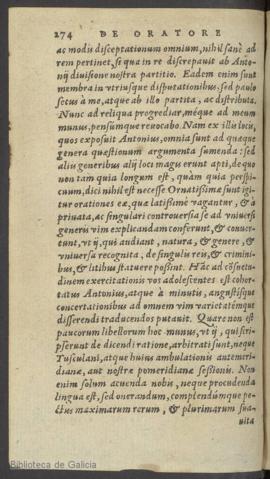 274 DE ORATORE
ac modis disceptationum omnium, nihil sanè ad
rem pertinet, si qua in re discrepauit ab Anto-
nij diuisione nostra partitio. Eadem enim sunt
membra in vtriusque disputationibus: sed paulo
secus a me, atque ab illo partita, ac distributa.
Nunc ad reliqua progrediar, méque ad meum
munus, pensúmque reuocabo. Nam ex illis locis,
quos exposuit Antonius, omnia sunt ad quæque
genera quæstionum argumenta sumenda: sed
aliis generibus alij loci magis erunt apti, de quo
non tam quia longum est, quàm quia perspi-
cuum, dici nihil est necesse. Ornatißimæ sunt igi-
tur orationes eæ, quæ latißimè vagantur, & à
priuata, ac singulari controuersia se ad vniuersi
generis vim explicandam conferunt, & conuer-
tunt, vt ij, qui audiant, natura, & genere, &
vniuersa re cognita, de singulis reis, & crimini-
bus, & litibus statuere poßint. Hac ad cōsuetu-
dinem exercitationis vos adolescentes est cohor-
tatus Antonius, atque à minutis, angustísque
concertationibus ad omnem vim varietatémque
differendi traducendos putauit. Quare non est
paucorum libellorum hoc munus, vt ij, qui scri-
pserunt de dicendi ratione, arbitrati sunt, neque
Tusculani, atque huius ambulationis antemeri-
dianæ, aut nostræ pomeridianæ seßionis. Non
enim solum acuenda nobis, neque procudenda
lingua est, sed onerandum, complendúmque pe-
ctus maximarum rerum, & plurimarum sua-
uita
Biblioteca de Galicia